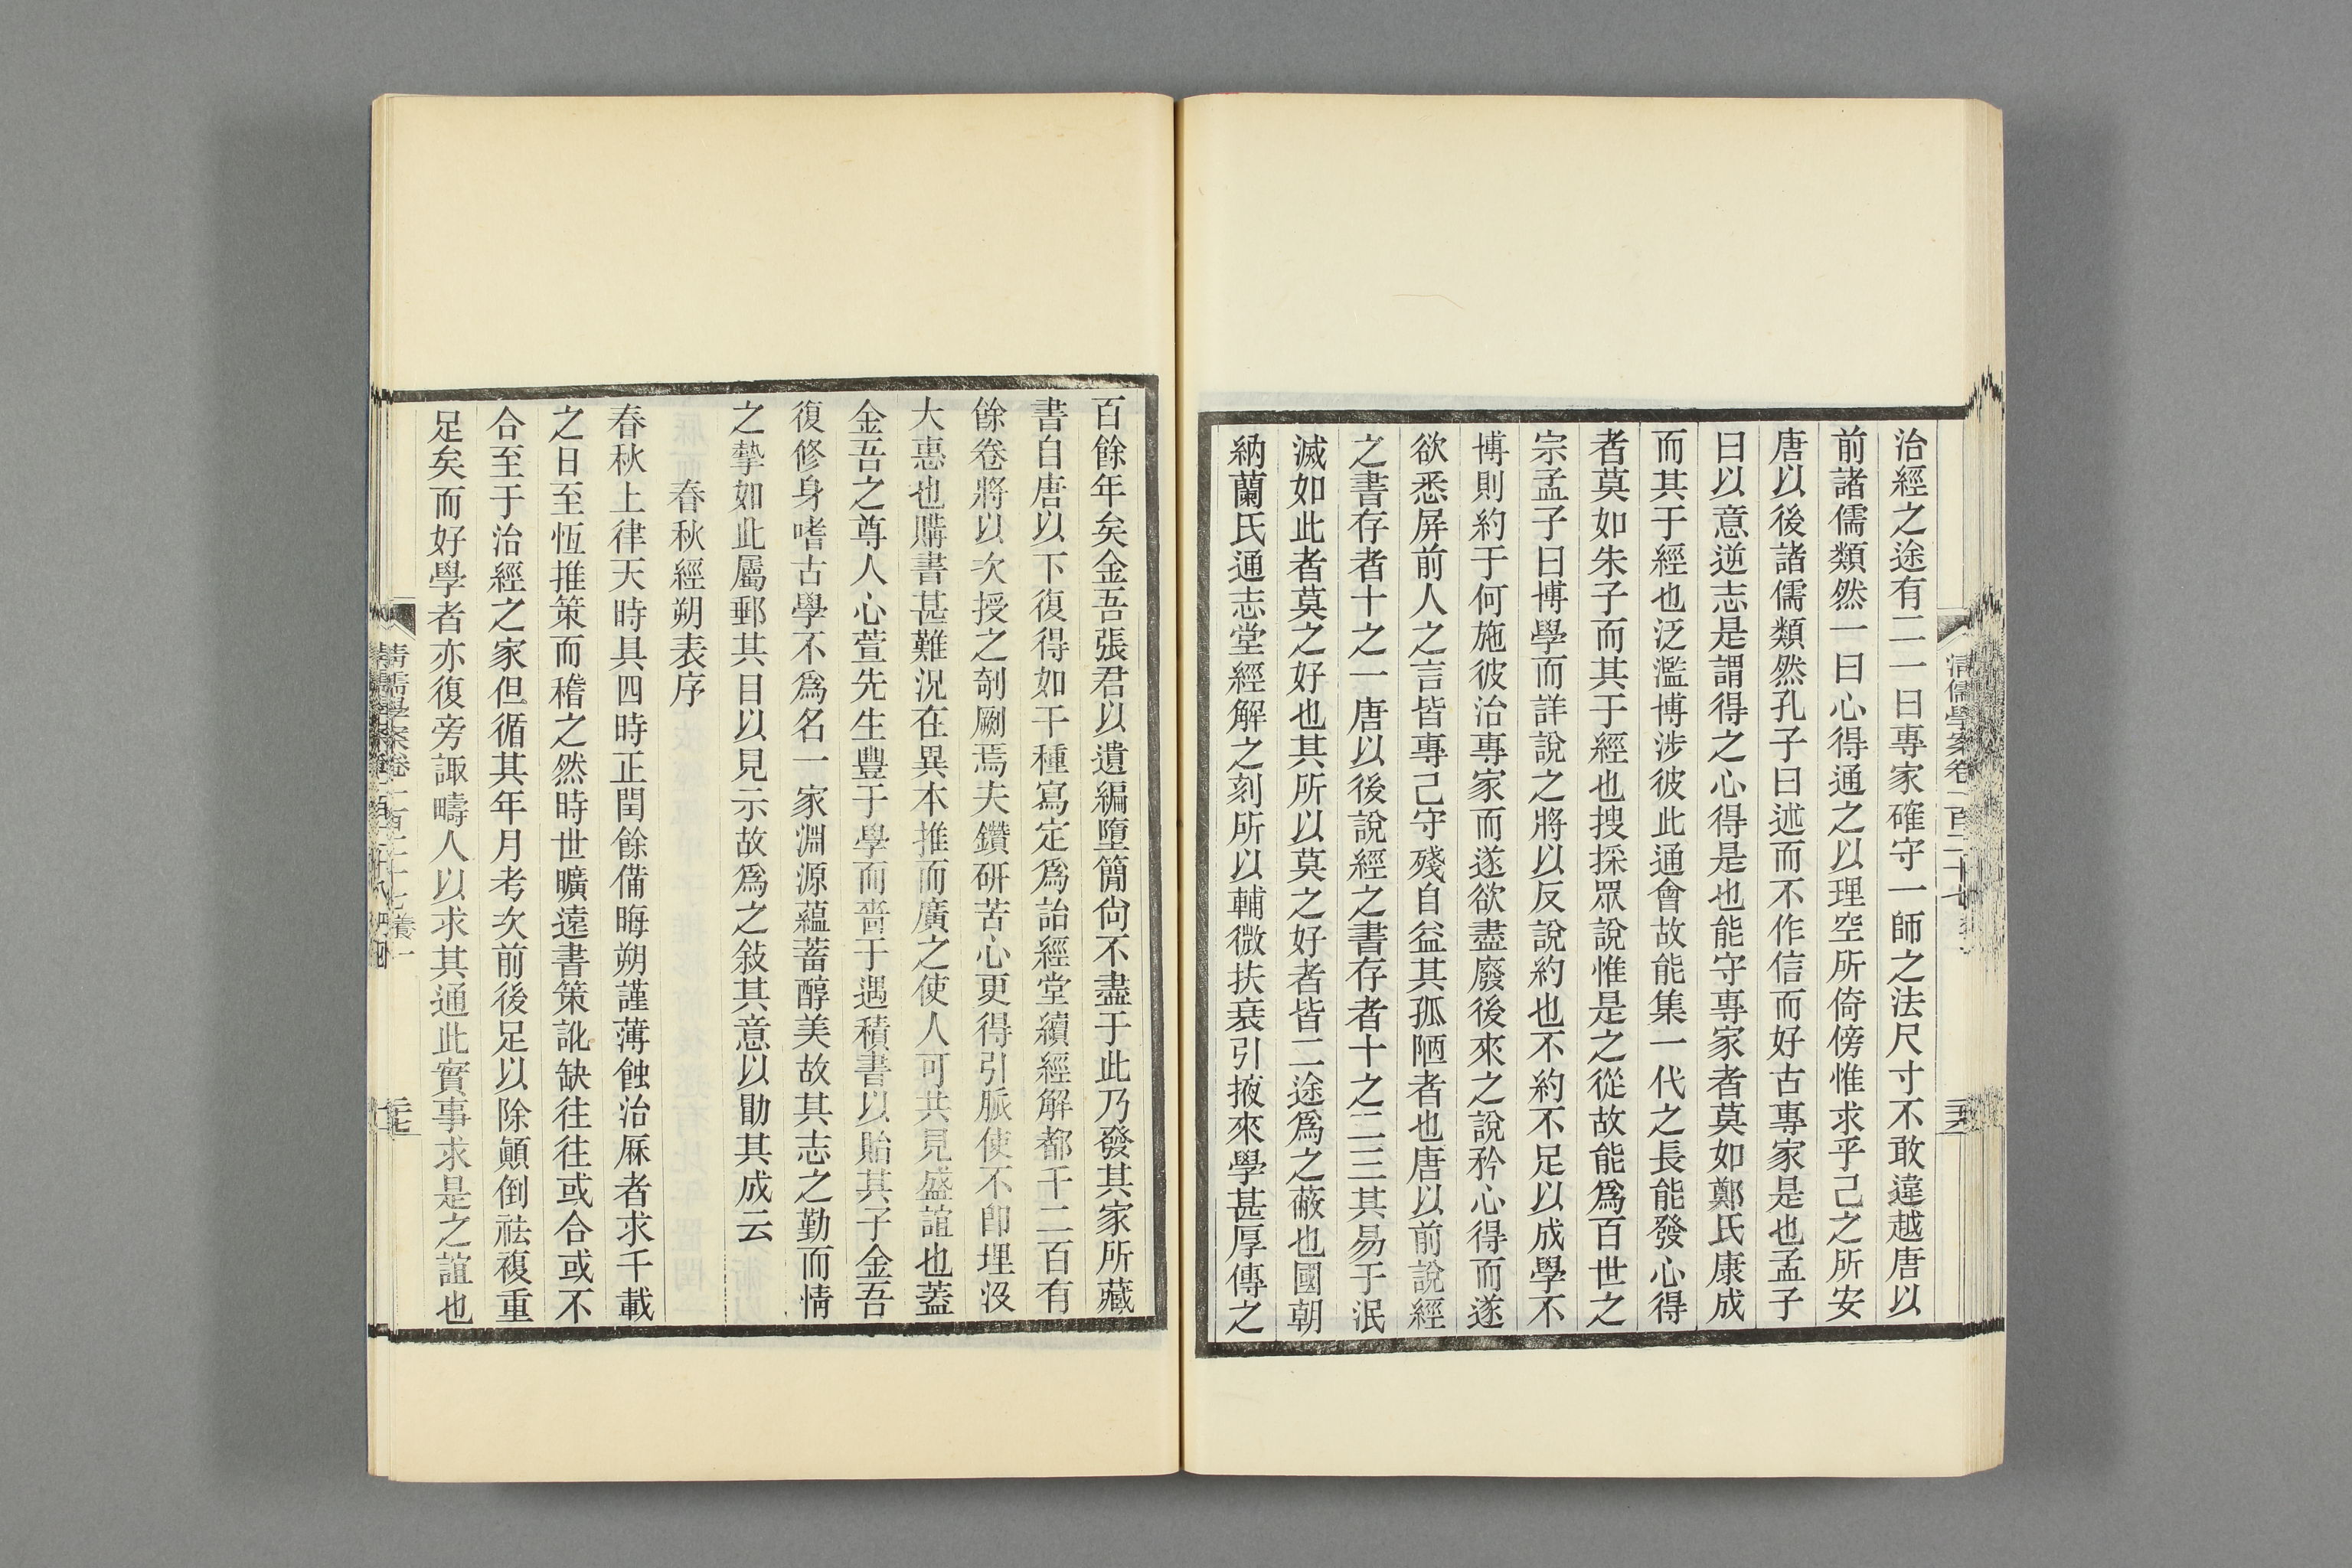 治經之途有二一曰專家確守一師之法尺寸不敢違越唐以
前諸儒類然一曰心得通之以理空所倚傍惟求乎己之所安
唐以後諸儒類然孔子曰述而不作信而好古專家是也孟子
曰以意逆志是謂得之心得是也能守專家者莫如鄭氏康成
而其于經也泛濫博涉彼此通會故能集一代之長能發心得
者莫如朱子而其于經也搜採眾說惟是之從故能爲百世之
宗孟子曰博學而詳說之將以反說約也不約不足以成學不
博則約于何施彼治專家而遂欲盡廢後來之說矜心得而遂
欲悉屏前人之言皆專己守殘自益其孤陋者也唐以前說經
之書存者十之一唐以後說經之書存者十之二三其易于泯
滅如此者莫之好也其所以莫之好者皆二途爲之蔽也國朝
納蘭氏通志堂經解之刻所以輔微扶衰引掖來學甚厚傳之
清儒學案卷一百二十七
二十六
百餘年矣金吾張君以遺編墮簡尙不盡于此乃發其家所藏
書自唐以下復得如干種寫定爲詒經堂續經解都千二百有
餘卷將以次授之剞劂焉夫鑽研苦心更得引脈使不卽堙汲
大惠也購書甚難況在異本推而廣之使人可共見盛誼也蓋
金吾之尊人心萱先生豐于學而嗇于遇積書以貽其子金吾
復修身嗜古學不爲名一家淵源蘊蓄醇美故其志之勤而情
之摯如此屬郵其目以見示故爲之敍其意以勖其成云
春秋經朔表序
春秋上律天時具四時正閏餘備晦朔謹薄蝕治厤者求千載
之日至恆推策而稽之然時世曠遠書策訛缺往往或合或不
合至于治經之家但循其年月考次前後足以除顚倒袪複重
足矣而好學者亦復旁諏疇人以求其通此實事求是之誼也
清儒學案卷一百二十七 養一
二十七